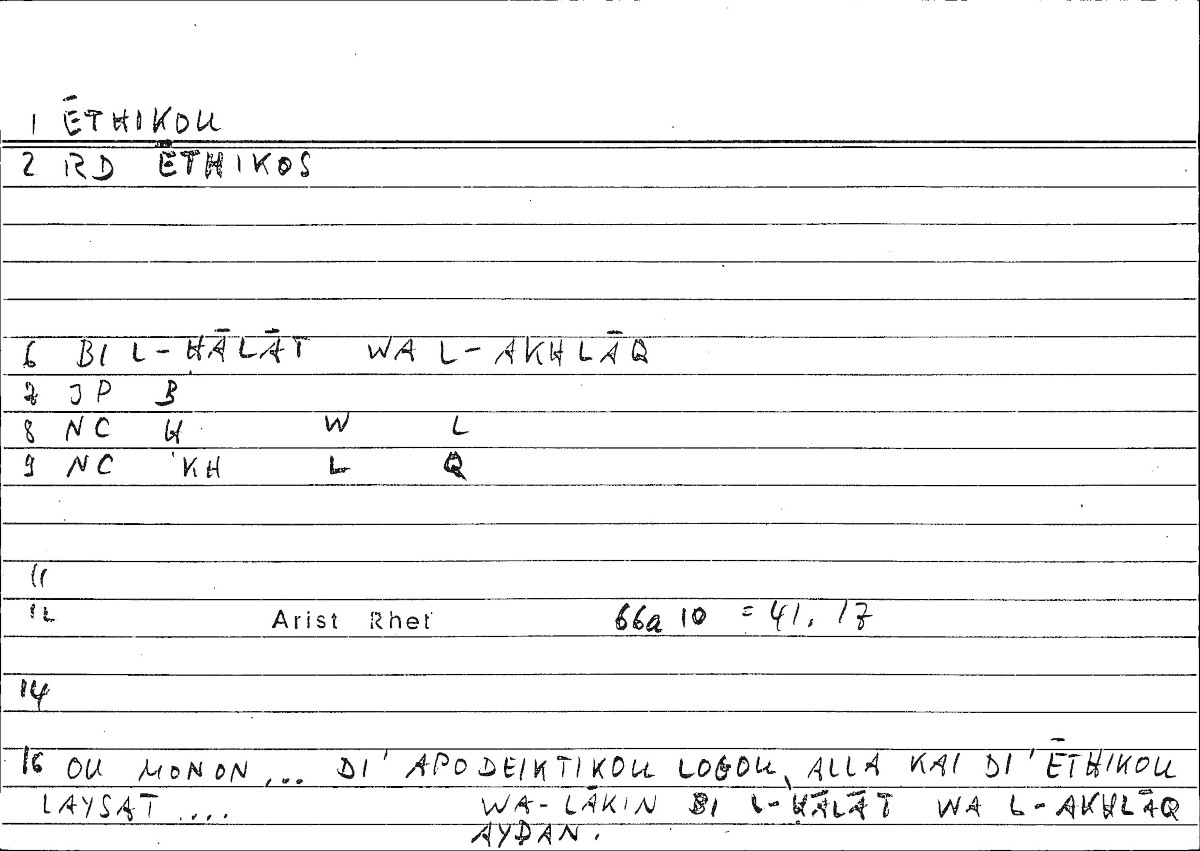 1 ĒTHIKOU
2 RD ĒTHIKOS
6 BI L-ḤĀLĀT WA L-AKHLĀQ
7 JP B
8 NC Ḥ W L
9 NC 'KH L Q
11
12 Arist Rhet 66a 10 = 41, 17
14
16 OU MONON ... DI' APODEIKTIKOU LOGOU, ALLA KAI DI' ĒTHIKOU
LAYSAT .... WA-LĀKIN BI L-ḤĀLĀT WA L-AKHLĀQ
AYḌAN.